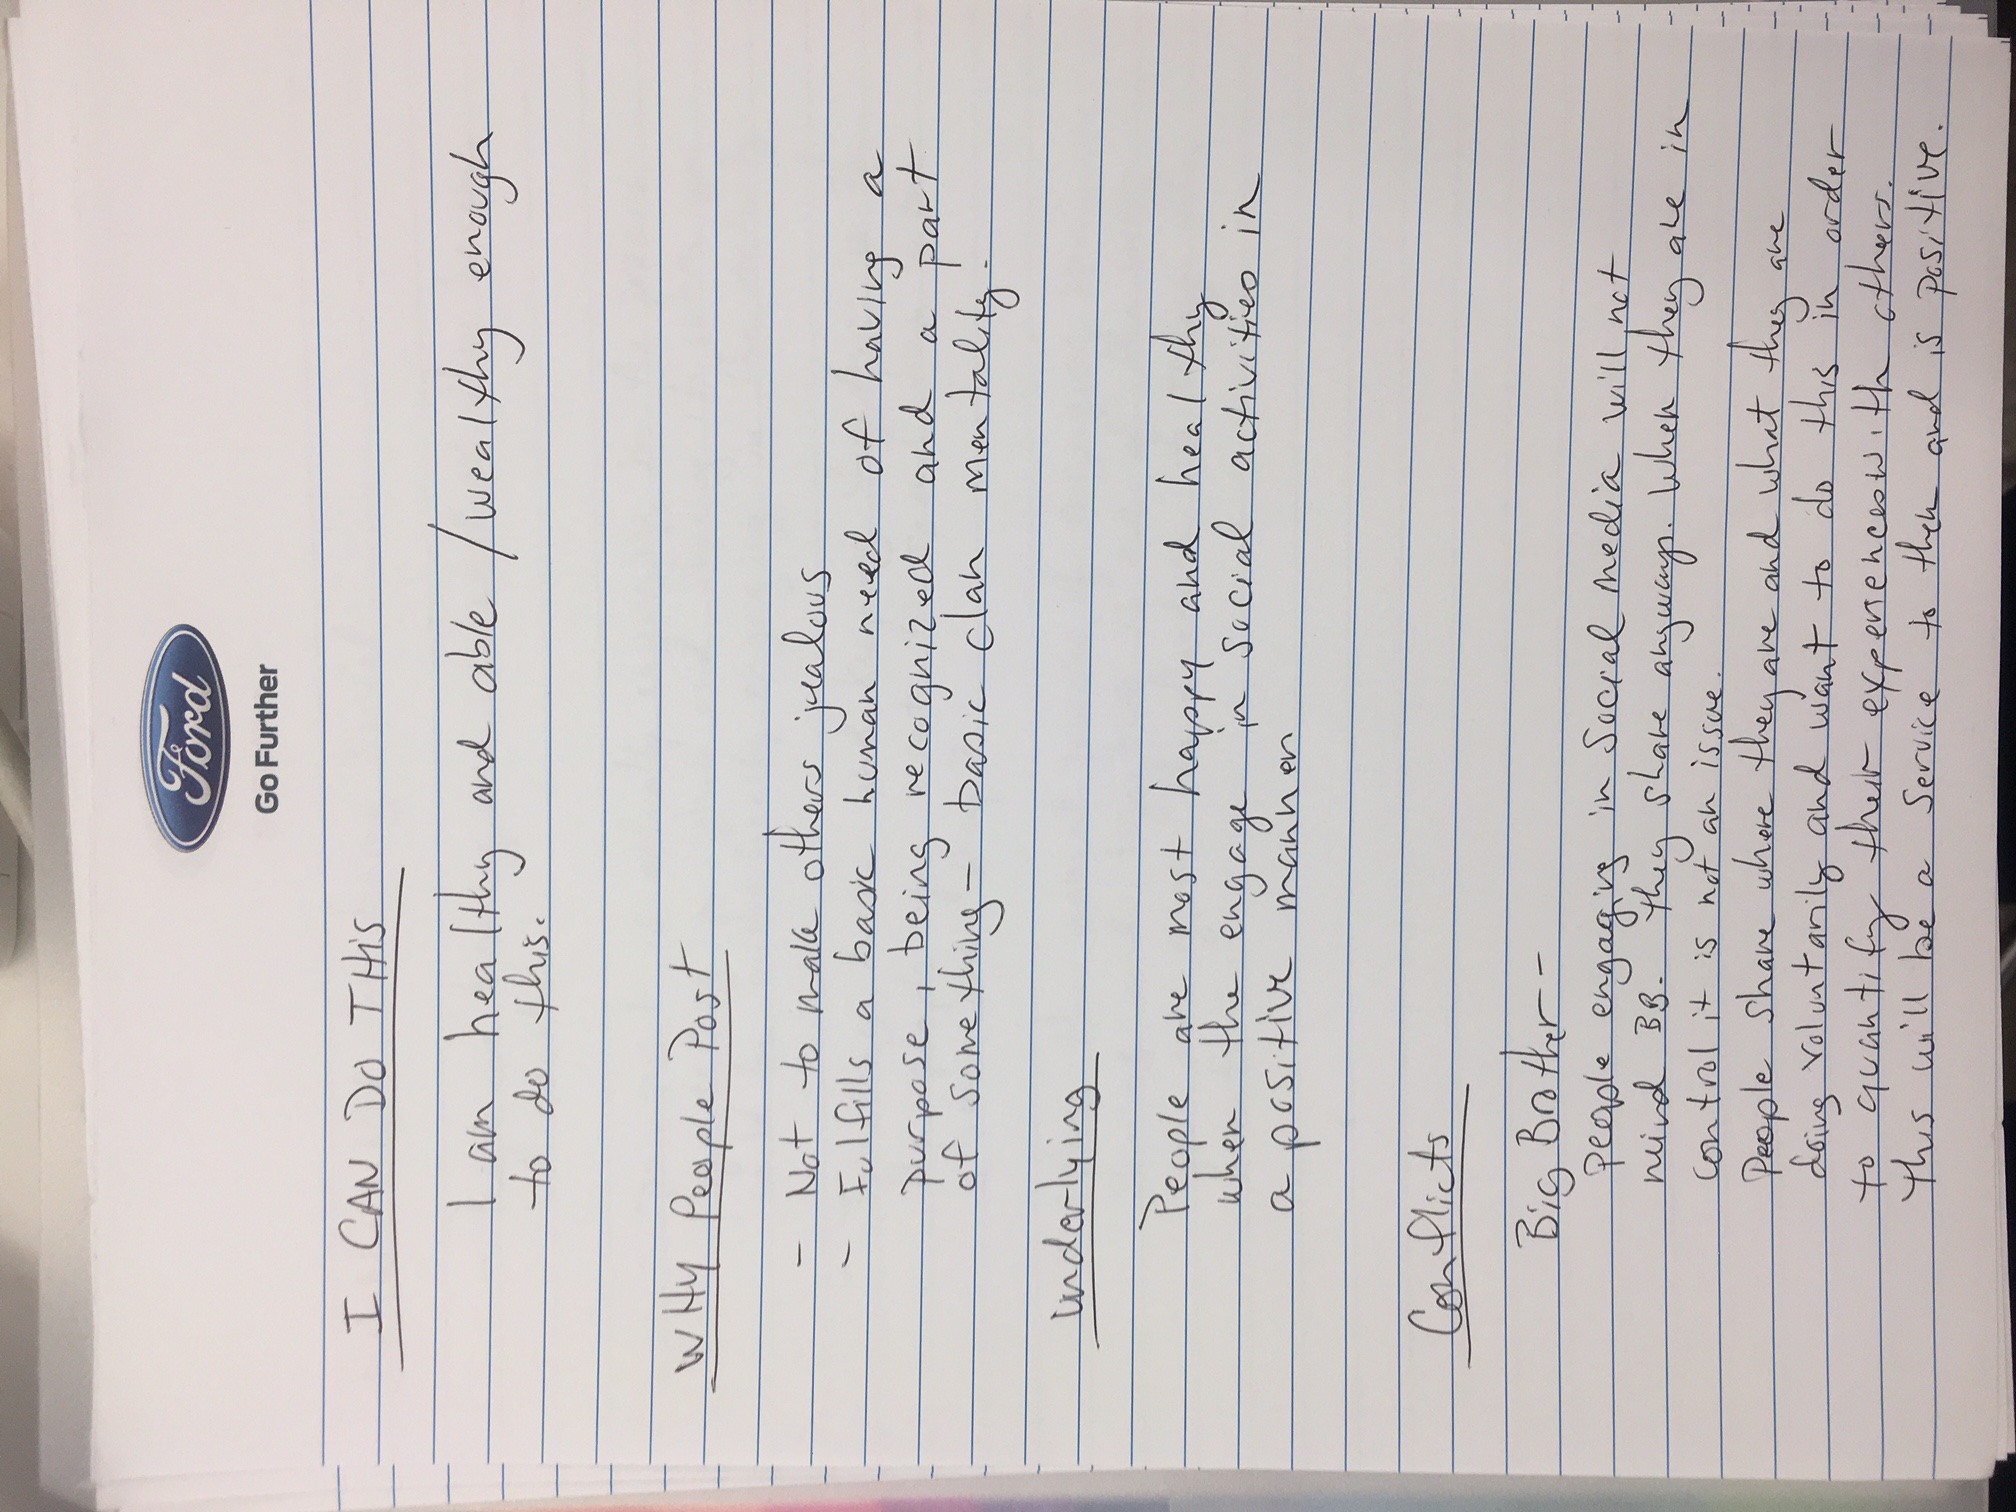 Ford
Go Further
I CAN DO THIS
I am healthy and able / wealthy enough
to do this.
WHY People Post
- Not to make others jealous
- Fulfills a basic human need of having a
purpose, being recognized and a part
of something - basic clan mentality.
underlying
People are most happy and healthy
when the engage in social activities in
a positive manner
Conflicts
Big Brother -
People engaging in Social media will not
mind BB. They share anyways. When they are in
control it is not an issue.
People share where they are and what they are
doing voluntarily and want to do this in order
to quantify their experiences with others.
This will be a service to them and is positive.